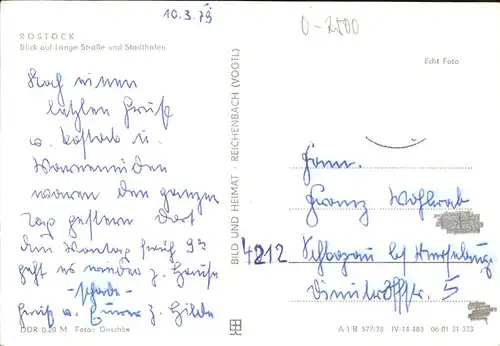 10.3.79
0-2500
ROSTOCK
Blick auf Lange Straße und Stadthafen
Echt Foto
Noch einen
letzten Gruß
v. Rostock u.
Warnemünde
waren den ganzen
Tag gestern dort
den Montag früh 9
geht es wieder z. Hause
-schade-
Gruß v. Eurer z. Hilde
DDR 0,20 M Foto: Darschke
BILD UND HEIMAT · REICHENBACH (VOGTL)
Fam.
Franz Wohlrab
4212
Schkopau bei Merseburg
Dimitroffstr. 5
A 1/B 577/76 IV-14-483 06 01 31 353